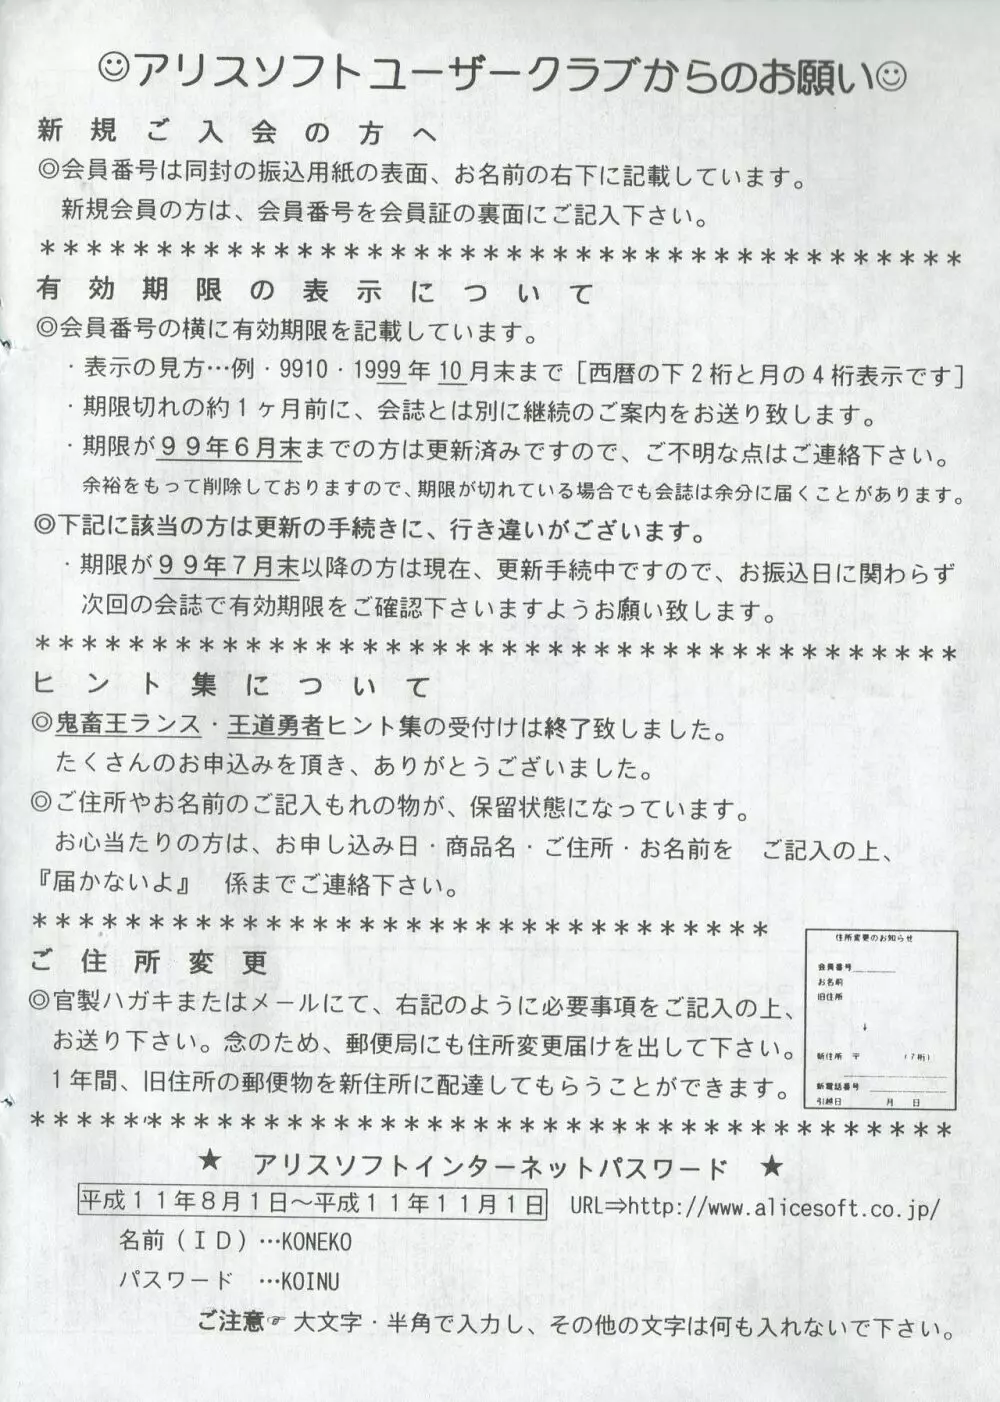 ☺アリスソフトユーザークラブからのお願い☺
新規ご入会の方へ
◎会員番号は同封の振込用紙の表面、お名前の右下に記載しています。
新規会員の方は、会員番号を会員証の裏面にご記入下さい。
＊＊＊＊＊＊＊＊＊＊＊＊＊＊＊＊＊＊＊＊＊＊＊＊＊＊＊＊＊＊＊＊＊＊＊＊＊＊＊＊
有効期限の表示について
◎会員番号の横に有効期限を記載しています。
・表示の見方…例・9910・1999年10月末まで［西暦の下２桁と月の４桁表示です］
・期限切れの約１ヶ月前に、会誌とは別に継続のご案内をお送り致します。
・期限が９９年６月末までの方は更新済みですので、ご不明な点はご連絡下さい。
余裕をもって削除しておりますので、期限が切れている場合でも会誌は余分に届くことがあります。
◎下記に該当の方は更新の手続きに、行き違いがございます。
・期限が９９年７月末以降の方は現在、更新手続中ですので、お振込日に関わらず
次回の会誌で有効期限をご確認下さいますようお願い致します。
＊＊＊＊＊＊＊＊＊＊＊＊＊＊＊＊＊＊＊＊＊＊＊＊＊＊＊＊＊＊＊＊＊＊＊＊＊＊＊＊
ヒント集について
◎鬼畜王ランス・王道勇者ヒント集の受付けは終了致しました。
たくさんのお申込みを頂き、ありがとうございました。
◎ご住所やお名前のご記入もれの物が、保留状態になっています。
お心当たりの方は、お申し込み日・商品名・ご住所・お名前を　ご記入の上、
『届かないよ』　係までご連絡下さい。
＊＊＊＊＊＊＊＊＊＊＊＊＊＊＊＊＊＊＊＊＊＊＊＊＊＊＊＊＊＊＊＊
ご住所変更
◎官製ハガキまたはメールにて、右記のように必要事項をご記入の上、
お送り下さい。念のため、郵便局にも住所変更届けを出して下さい。
１年間、旧住所の郵便物を新住所に配達してもらうことができます。
住所変更のお知らせ
会員番号
お名前
旧住所
↓
新住所　〒　（７桁）
新電話番号
引越日　月　日
＊＊＊＊＊＊＊＊＊＊＊＊＊＊＊＊＊＊＊＊＊＊＊＊＊＊＊＊＊＊＊＊＊＊＊＊＊＊＊＊
★　アリスソフトインターネットパスワード　★
平成１１年８月１日～平成１１年１１月１日　URL⇒http://www.alicesoft.co.jp/
名前（ＩＤ）…KONEKO
パスワード　…KOINU
ご注意☞大文字・半角で入力し、その他の文字は何も入れないで下さい。